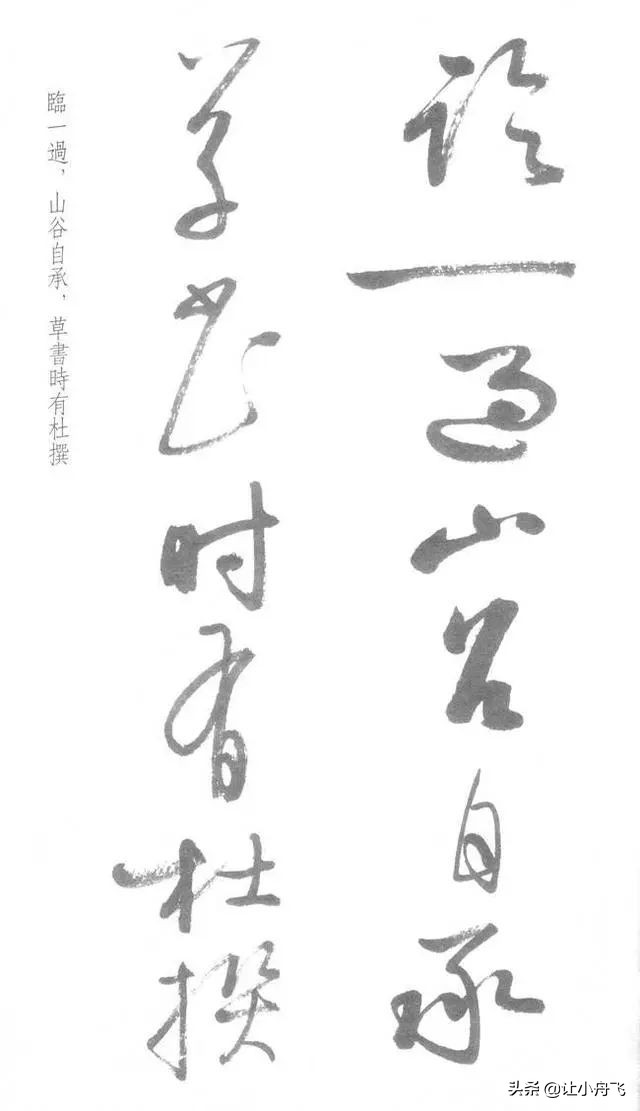 臨一過山谷自承
草書时有杜撰
臨一過，山谷自承，草書時有杜撰
头条 @让小舟飞